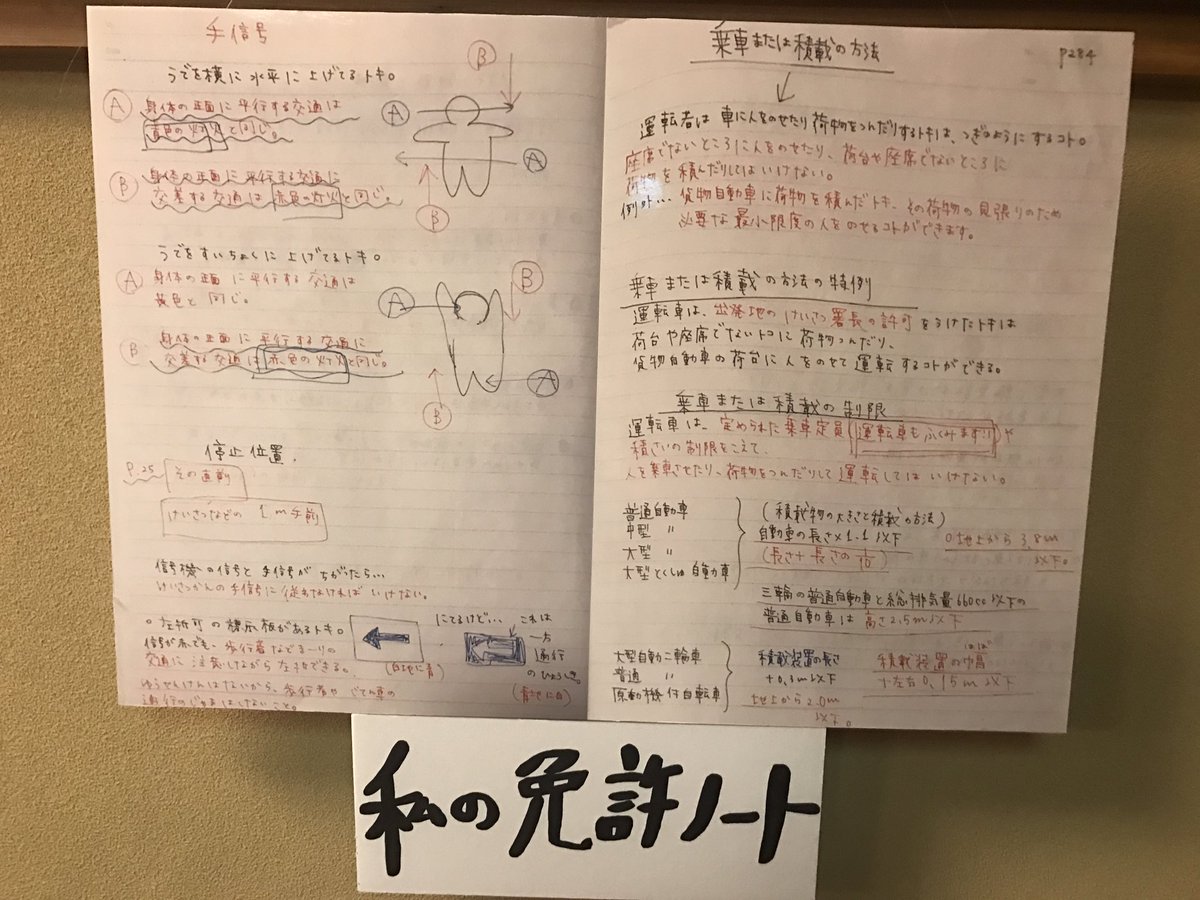 手信号
うでを横に水平に上げてるトキ。
Ⓐ 身体の正面に平行する交通は
青色の灯火と同じ。
Ⓑ 身体の正面に平行する交通に
交差する交通は赤色の灯火と同じ。
Ⓑ
Ⓐ
Ⓐ
Ⓑ
うでをすいちょくに上げてるトキ。
Ⓐ 身体の正面に平行する交通は
黄色と同じ。
Ⓑ 身体の正面に平行する交通に
交差する交通は赤色の灯火と同じ。
Ⓐ
Ⓑ
Ⓐ
Ⓑ
停止位置.
P.25 その直前
けいさつなどの 1m手前
信号機の信号と手信号がちがったら…
けいさつかんの手信号に従わなければいけない。
○左折可の標示板があるトキ。
信号が赤でも、歩行者などまーりの
交通に注意しながら左折できる。
ゆうせんけんはないから、歩行者や じてん車の
通行のじゃまはしないこと。
(白地に青)
にてるけど…
これは
一方
通行
のひょうしき。
(青地に白)
乗車または積載の方法 P284
↓
運転者は車に人をのせたり荷物をつんだりするトキは、つぎのようにするコト。
座席でないところに人をのせたり、荷台や座席でないところに
荷物を積んだりしてはいけない。
例外… 貨物自動車に荷物を積んだトキ、その荷物の見張りのため
必要な最小限度の人をのせるコトができます。
乗車または積載の方法の特例
運転車は、出発地のけいさつ署長の許可をうけたトキは
荷台や座席でないトコに荷物つんだり、
貨物自動車の荷台に人をのせて運転するコトができる。
乗車または積載の制限
運転車は、定められた乗車定員(運転車もふくみます!!)や
積さいの制限をこえて、
人を乗車させたり、荷物をつんだりして運転してはいけない。
普通自動車
中型 〃
大型 〃
大型とくしゅ自動車
(積載物の大きさと積載の方法)
自動車の長さ×1.1以下
(長さ+長さの1/10)
○地上から3.8m
以下。
三輪の普通自動車と総排気量660cc以下の
普通自動車は高さ2.5m以下
大型自動二輪車
普通 〃
原動機付自転車
積載装置の長さ
+0.3m以下
積載装置の幅
はば
+左右0.15m以下
地上から2.0m
以下。
私の免許ノート